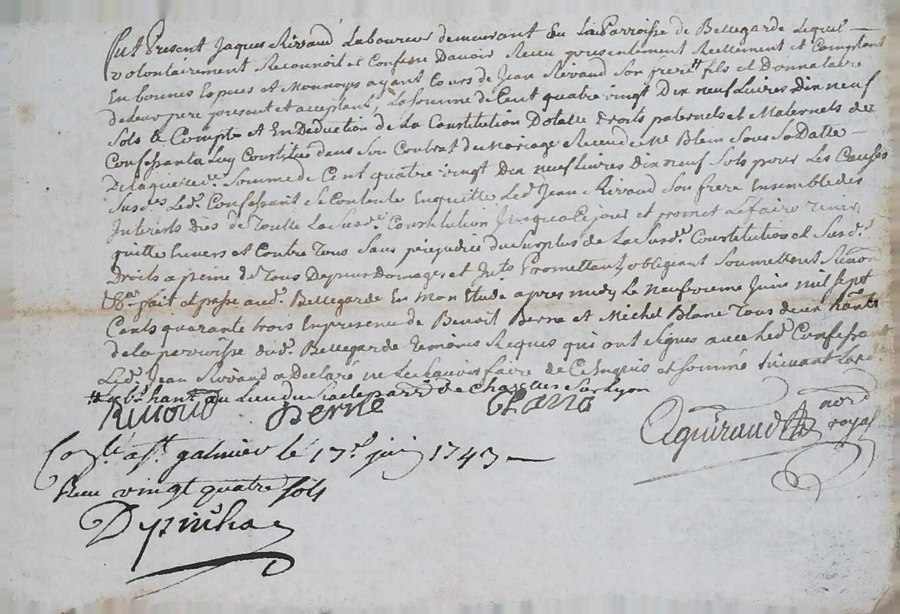 Fut Present Jaques Rivaud Laboureur demeurant du lieu Parroisse de Bellegarde Lequel
volontairement Reconnoit et Confesse D'avoir Receu presentement Reellement et Comptant
En bonnes Especes et Monnoye ayant Cours de Jean Rivaud Son frere # fils et Donnataire
de leur pere present et acceptant La Somme de Cent quatre vingt Dix neuf Livres Dix neuf
Sols a Compte et En Deduction de La Constitution Dotalle Droits paternels et Maternels de
Confessant a Luy Constitué dans Son Contrat de Mariage Receu de Me Blein Sous Sa Datte
De laquelle de. Somme de Cent quatre vingt Dix neuf Livres Dix neuf Sols pour Les Causes
Susdes. Led. Confessant Se Contente En quitte Led. Jean Rivaud Son frere Ensemble des
Interets de Toutte La Susde. Constitution Jusqua Ce jour et promet Le faire Tenir
quitte Envers et Contre Tous Sans prejudice du Surplus de La Susde. Constitution et Susd.
Droits a peine de Tous Depens Domages et Intts. Promettant obligeant Soumettant
fait et passé aud. Bellegarde En mon Etude apres midy Le Neufvieme Juin mil Sept
Cents quarante trois En presence de Benoit Berne et Michel Blanc Tous deux habts
de la parroisse dud. Bellegarde Temoins Requis qui ont Signés avec Led. Confessant
Led. Jean Rivaud a Declaré ne Le Scavoir faire de Ce Enquis et Sommé Suivant Lord
# habitant au Lieu de de Sur Lyon
Rivaud Berne Blanc
Aguiraud nore royal
Conlé a St. galmier le 17e. juin 1743
Receu vingt quatre sols
Depinhac